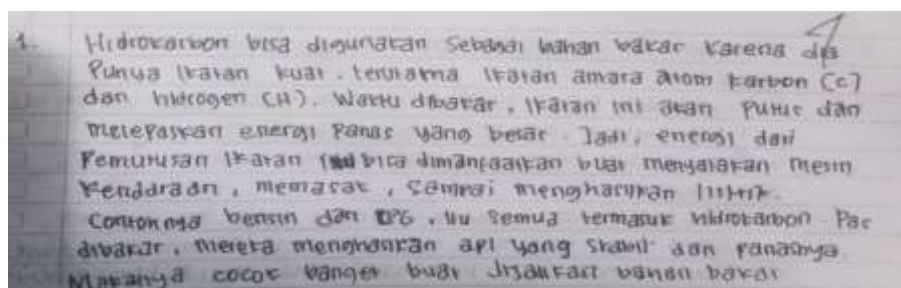 1. Hidrokarbon bisa digunakan sebagai bahan bakar karena dia
Punya ikatan kuat. terutama ikatan antara atom karbon (C)
dan hidrogen (H). Waktu dibakar, ikatan ini akan putus dan
melepaskan energi panas yang besar. Jadi, energi dari
Pemutusan ikatan bisa dimanfaatkan buat menyalakan mesin
Kendaraan, memasak, sampai menghasilkan listrik.
Contohnya bensin dan LPG, itu semua termasuk hidrokarbon. Pas
dibakar, mereka menghasilkan api yang stabil dan panasnya
Makanya cocok banget buat dijadikan bahan bakar